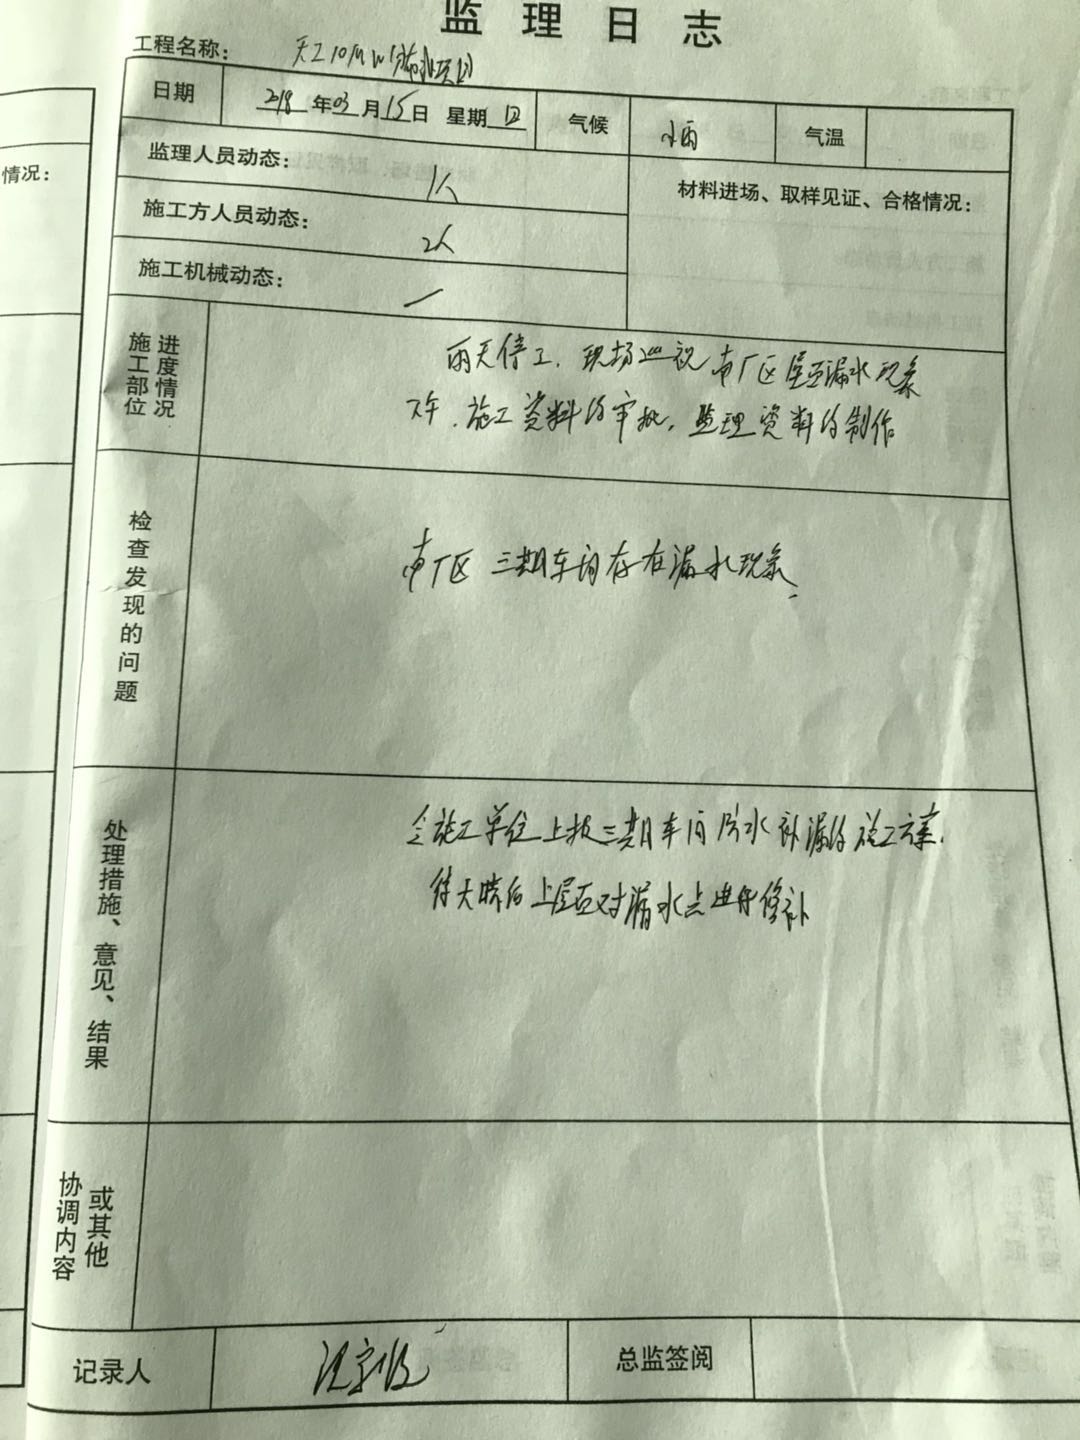 监理日志
工程名称： 天工10MW
日期 2018年03月15日 星期四 气候 小雨 气温
情况：
监理人员动态： 1人
材料进场、取样见证、合格情况：
施工方人员动态： 2人
施工机械动态： /
施工部位 进度情况
雨天停工，现场巡视南厂区屋面漏水现象
施工资料的审批，监理资料的制作
检查发现的问题
南厂区三期车间存在漏水现象
处理措施、意见、结果
施工单位上报三期车间防水补漏的施工方案，
待天晴后上屋面对漏水点进行修补
协调内容 或其他
记录人
总监签阅